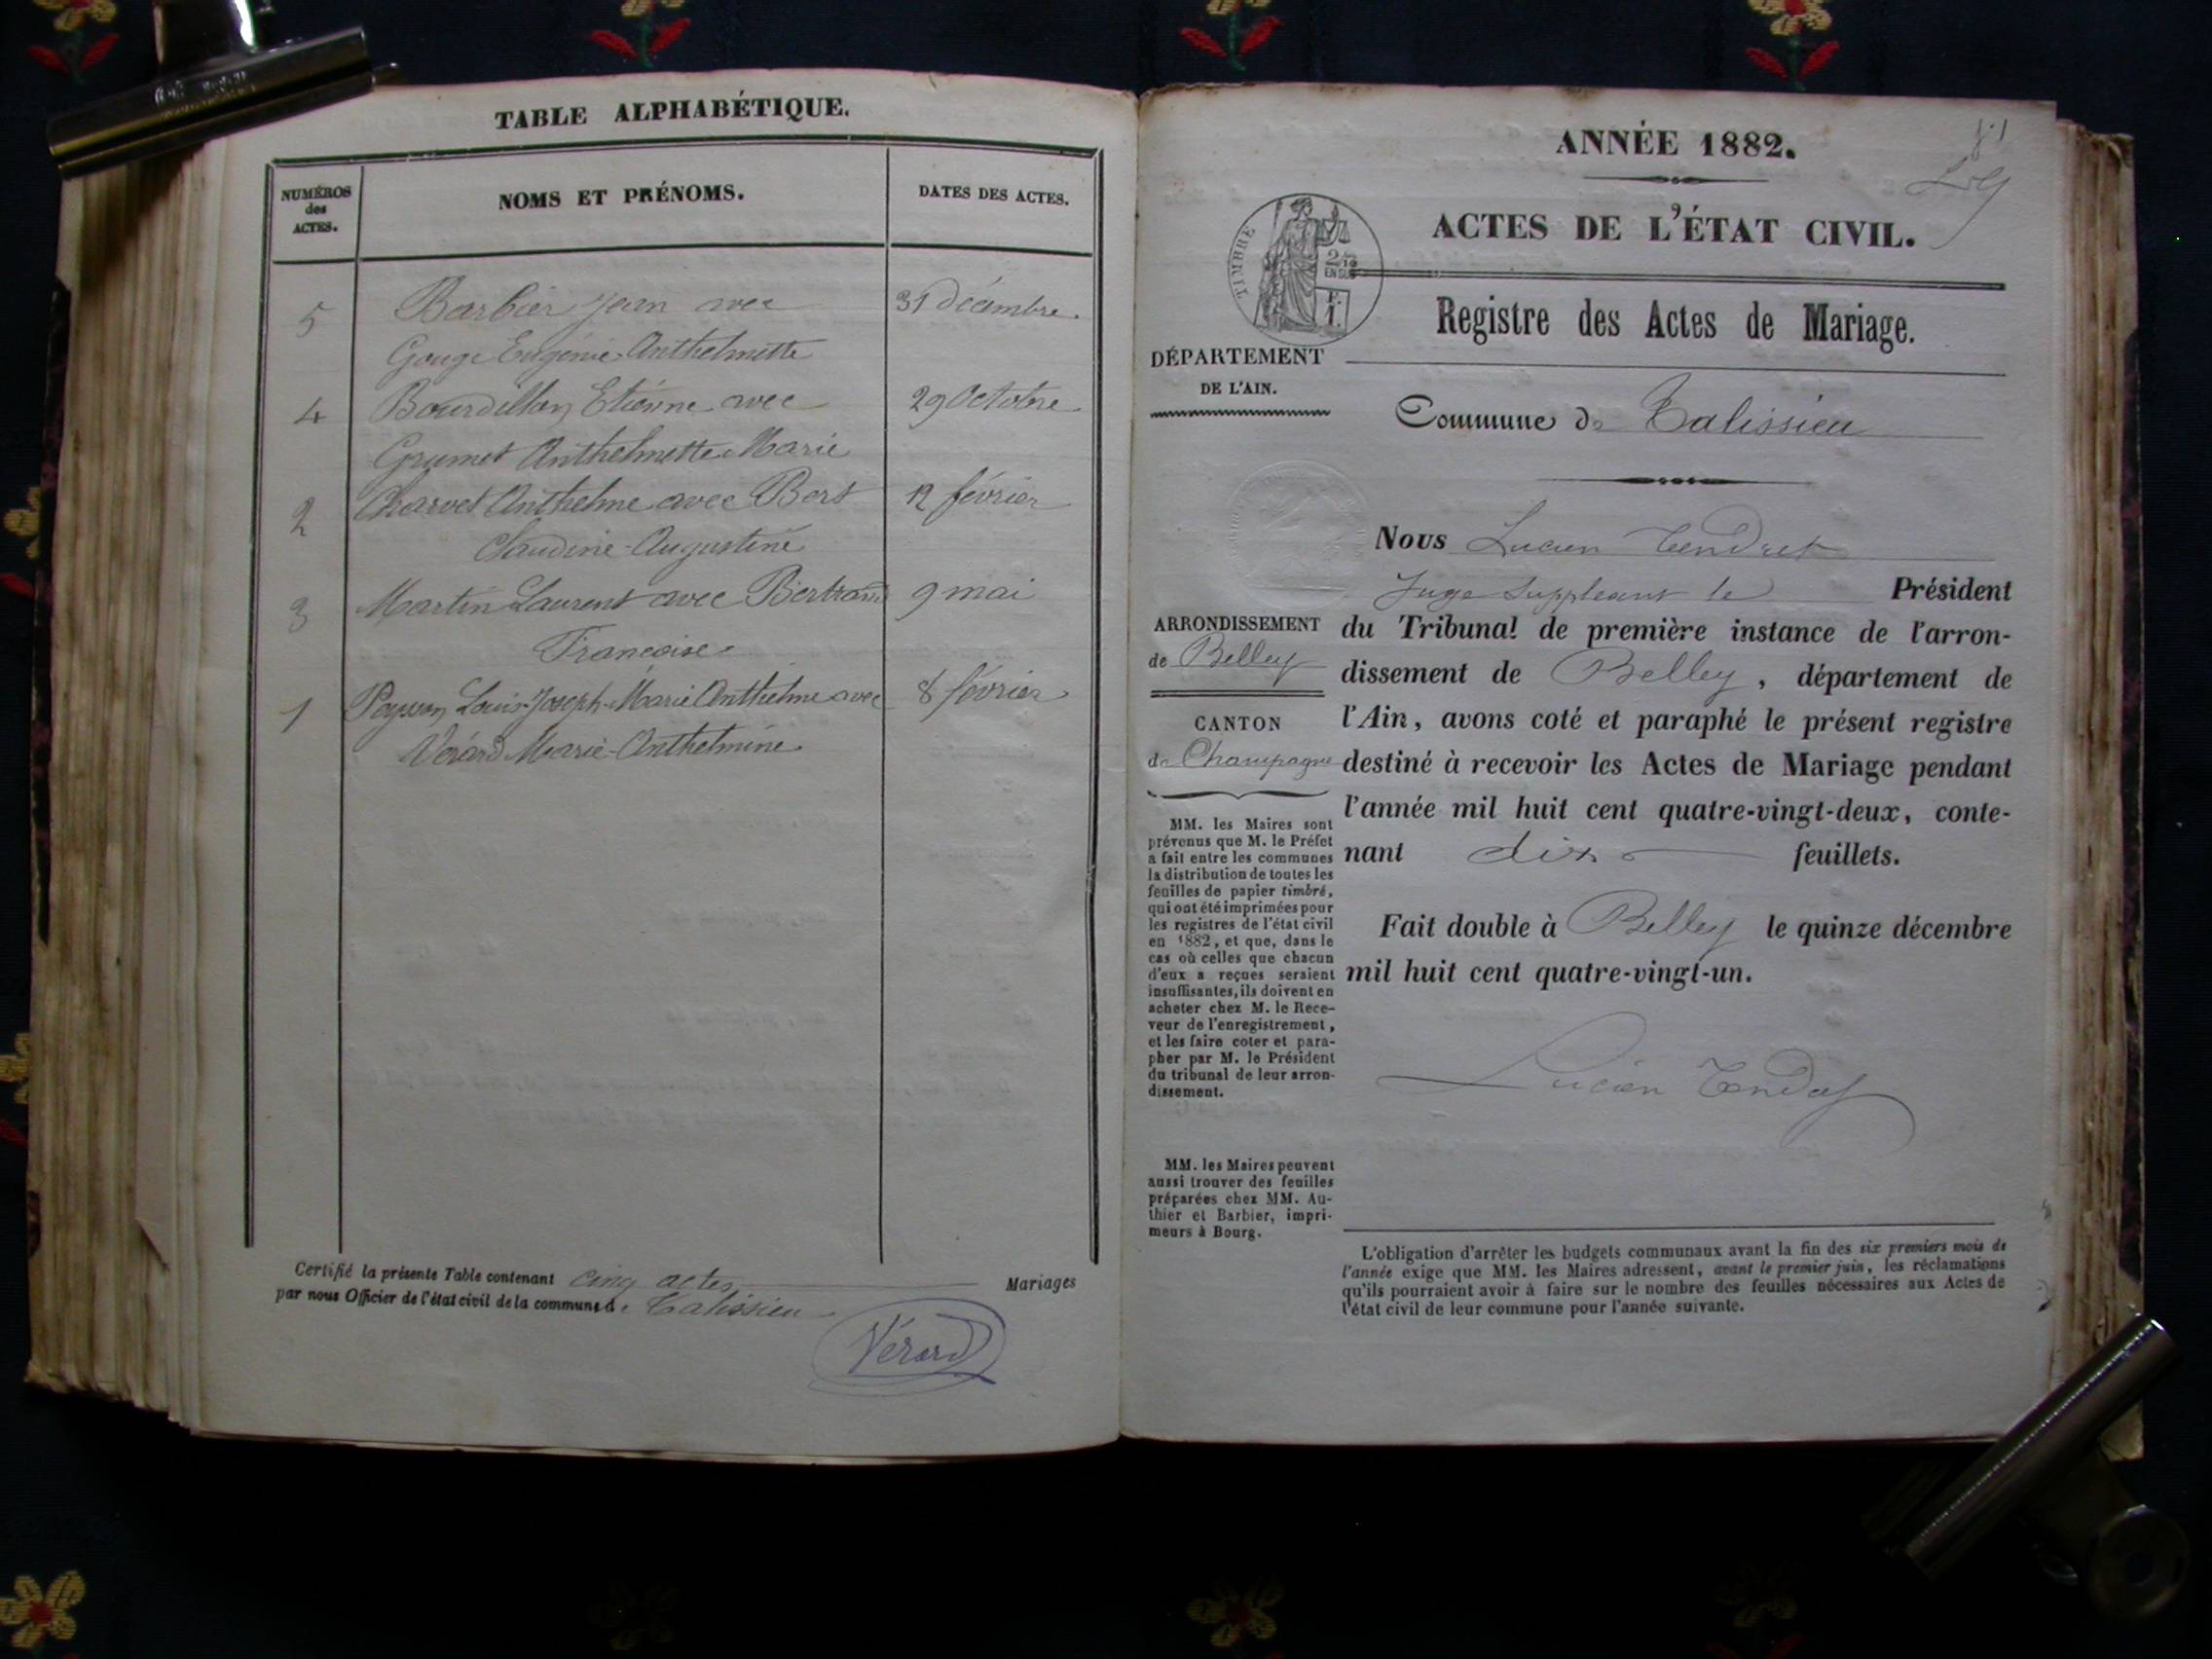 TABLE ALPHABÉTIQUE.
NUMÉROS des ACTES.
NOMS ET PRÉNOMS.
DATES DES ACTES.
5 Barbier Jean avec 31 décembre.
Gouge Eugénie Anthelmette
4 Bourdillon Etienne avec 29 Octobre
Grumet Anthelmette Marie
2 Charvet Anthelme avec Bert 12 février
Claudine-Augustine
3 Martin Laurent avec Bertrand 9 mai
Françoise
1 Peysson Louis-Joseph-Marie Anthelme avec 8 février
Vérard Marie-Anthelmine
Certifié la présente Table contenant cinq actes Mariages
par nous Officier de l'état civil de la commune de Talissieu
Vérard
ANNÉE 1882.
ACTES DE L'ÉTAT CIVIL.
TIMBRE
2/10
EN SUS
F.
1.
Registre des Actes de Mariage.
DÉPARTEMENT
DE L'AIN.
Commune de Talissieu
Nous Lucien Tendret
Juge Suppléant le Président
du Tribunal de première instance de l'arron-
dissement de Belley, département de
l'Ain, avons coté et paraphé le présent registre
destiné à recevoir les Actes de Mariage pendant
l'année mil huit cent quatre-vingt-deux, conte-
nant dix feuillets.
Fait double à Belley le quinze décembre
mil huit cent quatre-vingt-un.
Lucien Tendret
ARRONDISSEMENT
de Belley
CANTON
de Champagne
MM. les Maires sont
prévenus que M. le Préfet
a fait entre les communes
la distribution de toutes les
feuilles de papier timbré,
qui ont été imprimées pour
les registres de l'état civil
en 1882, et que, dans le
cas où celles que chacun
d'eux a reçues seraient
insuffisantes, ils doivent en
acheter chez M. le Rece-
veur de l'enregistrement,
et les faire coter et para-
pher par M. le Président
du tribunal de leur arron-
dissement.
MM. les Maires peuvent
aussi trouver des feuilles
préparées chez MM. Au-
thier et Barbier, impri-
meurs à Bourg.
L'obligation d'arrêter les budgets communaux avant la fin des six premiers mois de
l'année exige que MM. les Maires adressent, avant le premier juin, les réclamations
qu'ils pourraient avoir à faire sur le nombre des feuilles nécessaires aux Actes de
l'état civil de leur commune pour l'année suivante.